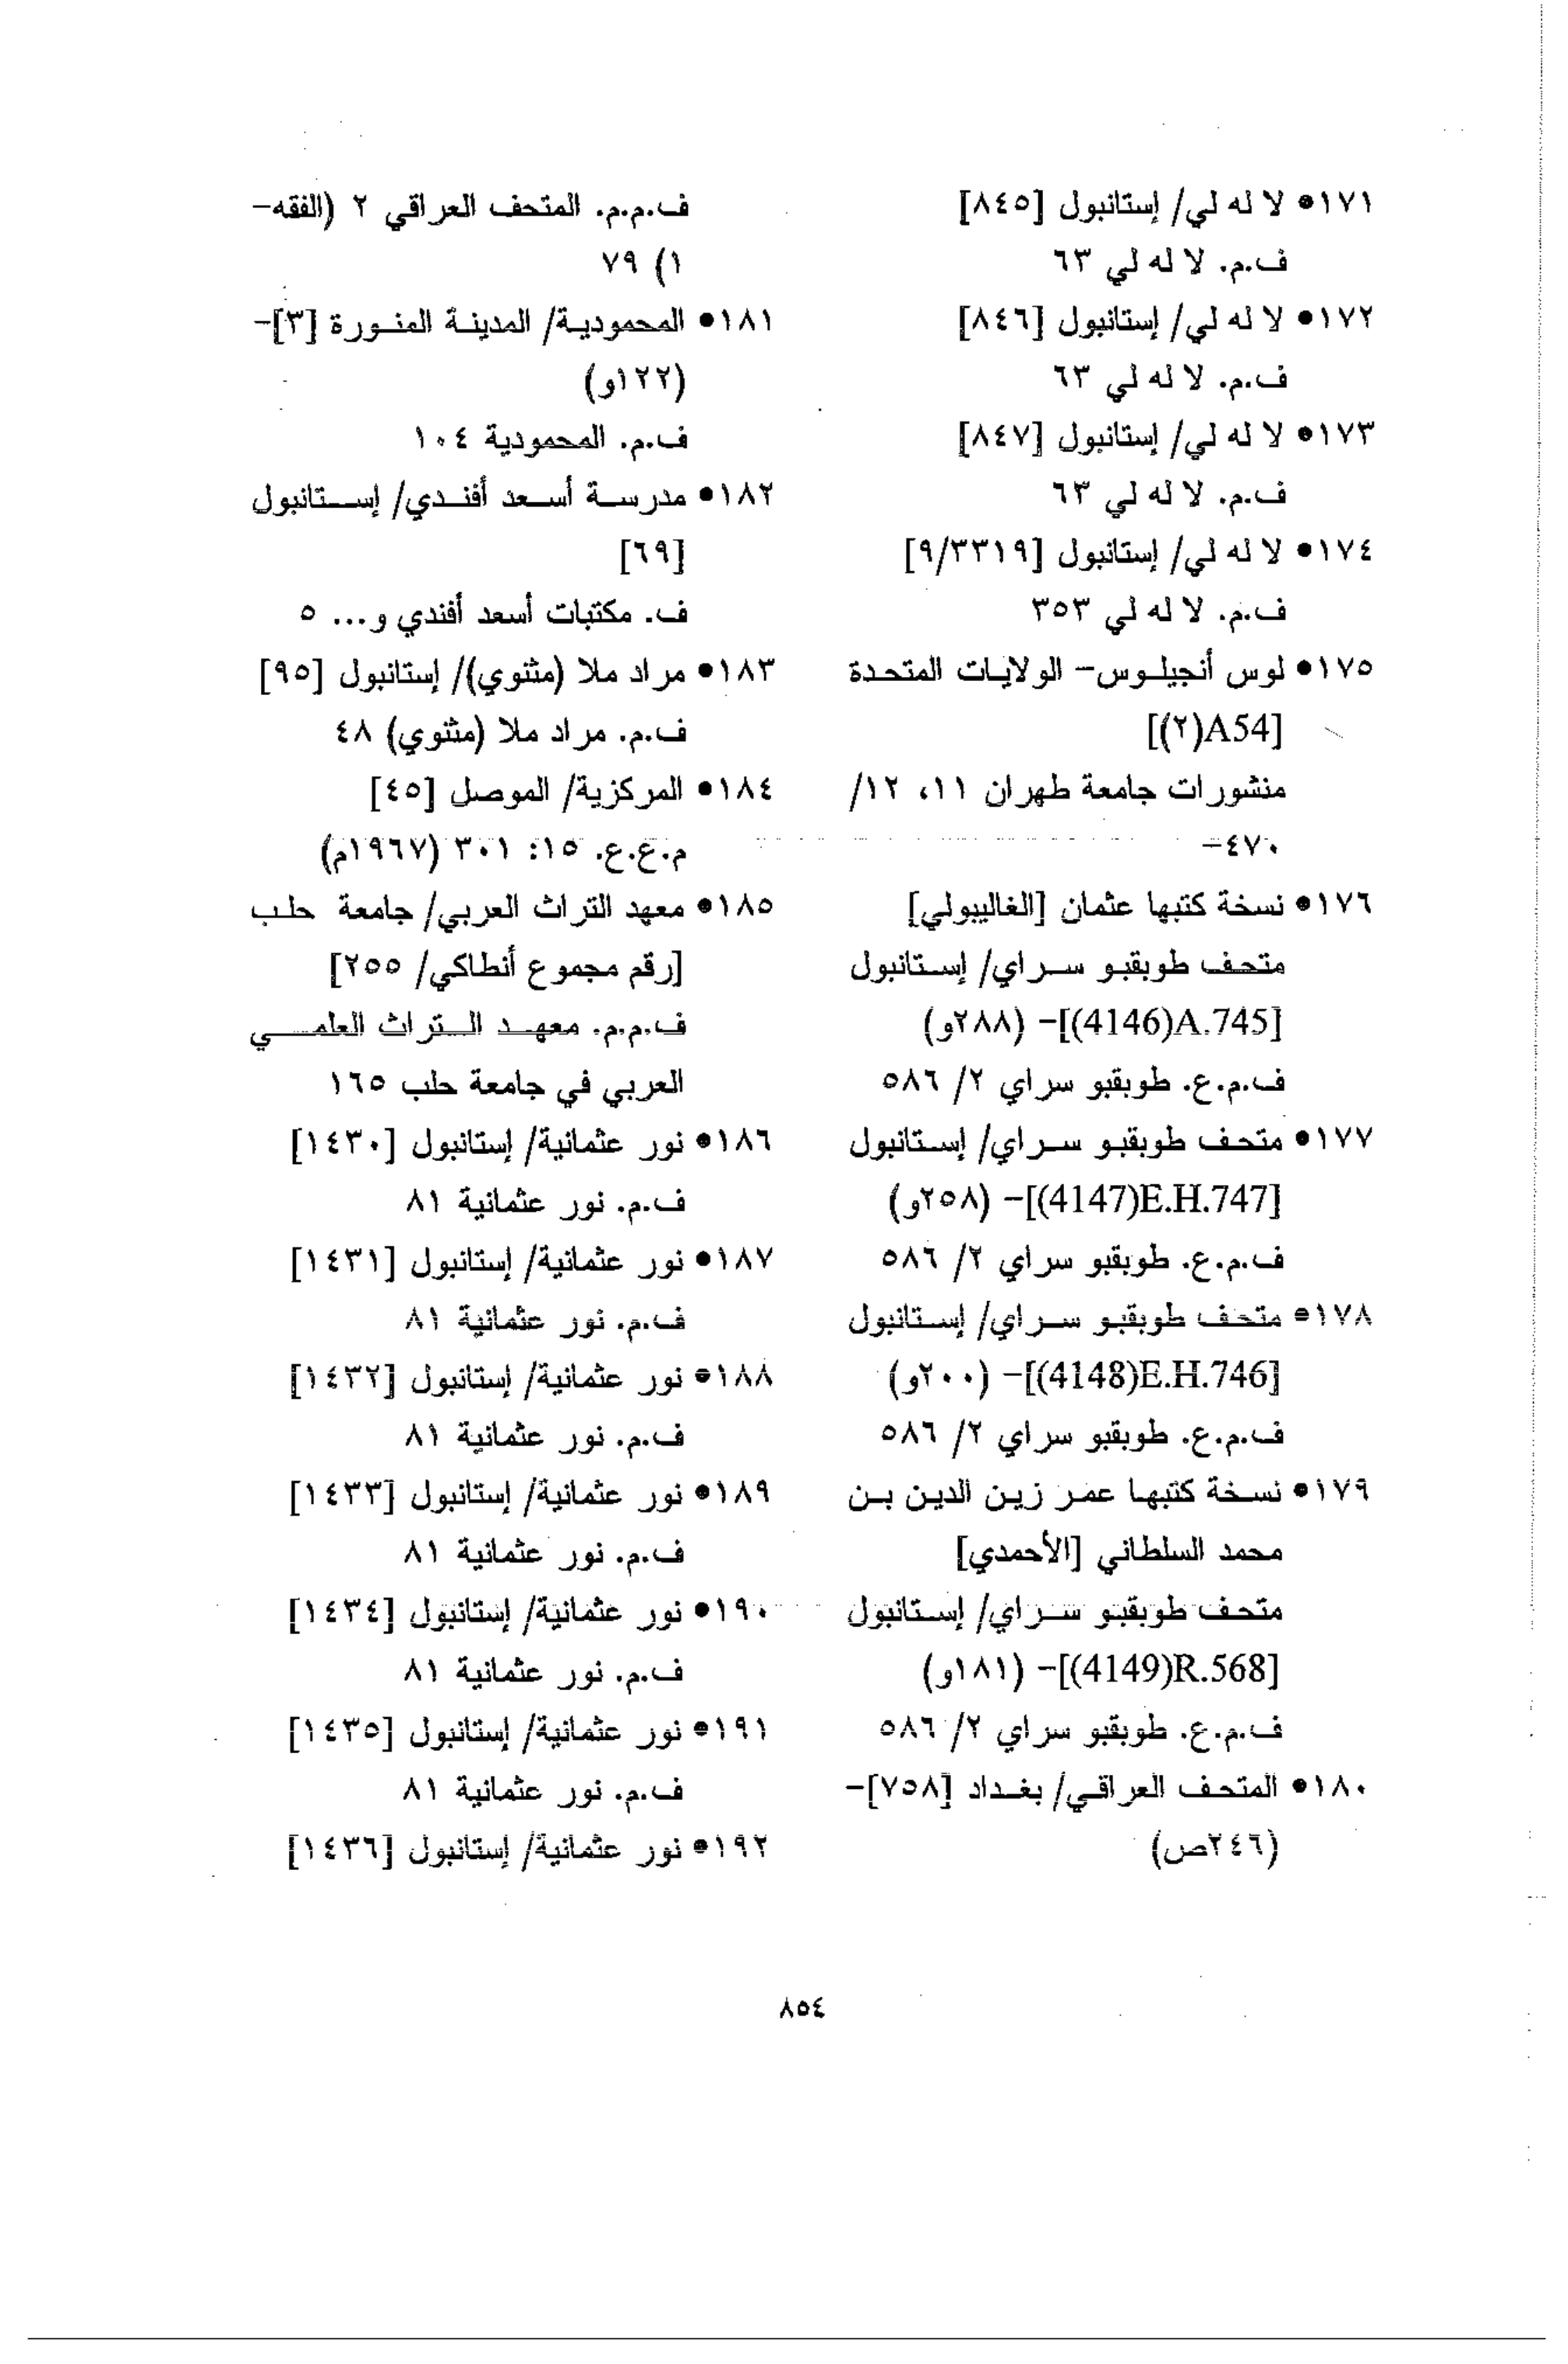 ١٧١• لا له لي/ إستانبول [٨٤٥]
ف.م. لا له لي ٦٣
١٧٢• لا له لي/ إستانبول [٨٤٦]
ف.م. لا له لي ٦٣
١٧٣• لا له لي/ إستانبول [٨٤٧]
ف.م. لا له لي ٦٣
١٧٤• لا له لي/ إستانبول [٩/٣٣١٩]
ف.م. لا له لي ٣٥٣
١٧٥• لوس أنجيلوس- الولايات المتحدة
[A54(٢)]
منشورات جامعة طهران ١١، ١٢/
٤٧٠-
١٧٦• نسخة كتبها عثمان [الغاليبولي]
متحف طوبقبو سراي/ إستانبول
[A.745(4146)]- (٢٨٨و)
ف.م.ع. طوبقبو سراي ٢/ ٥٨٦
١٧٧• متحف طوبقبو سراي/ إستانبول
[E.H.747(4147)]- (٢٥٨و)
ف.م.ع. طوبقبو سراي ٢/ ٥٨٦
١٧٨• متحف طوبقبو سراي/ إستانبول
[E.H.746(4148)]- (٢٠٠و)
ف.م.ع. طوبقبو سراي ٢/ ٥٨٦
١٧٩• نسخة كتبها عمر زين الدين بن
محمد السلطاني [الأحمدي]
متحف طوبقبو سراي/ إستانبول
[R.568(4149)]- (١٨١و)
ف.م.ع. طوبقبو سراي ٢/ ٥٨٦
١٨٠• المتحف العراقي/ بغداد [٧٥٨]-
(٢٤٦ص)
ف.م.م. المتحف العراقي ٢ (الفقه-
١) ٧٩
١٨١• المحمودية/ المدينة المنورة [٣]-
(١٢٢و)
ف.م. المحمودية ١٠٤
١٨٢• مدرسة أسعد أفندي/ إستانبول
[٦٩]
ف. مكتبات أسعد أفندي و... ٥
١٨٣• مراد ملا (مثنوي)/ إستانبول [٩٥]
ف.م. مراد ملا (مثنوي) ٤٨
١٨٤• المركزية/ الموصل [٤٥]
م.ع.ع. ١٥: ٣٠١ (١٩٦٧م)
١٨٥• معهد التراث العربي/ جامعة حلب
[رقم مجموع أنطاكي/ ٢٥٥]
ف.م.م. معهد التراث العلمي
العربي في جامعة حلب ١٦٥
١٨٦• نور عثمانية/ إستانبول [١٤٣٠]
ف.م. نور عثمانية ٨١
١٨٧• نور عثمانية/ إستانبول [١٤٣١]
ف.م. نور عثمانية ٨١
١٨٨• نور عثمانية/ إستانبول [١٤٣٢]
ف.م. نور عثمانية ٨١
١٨٩• نور عثمانية/ إستانبول [١٤٣٣]
ف.م. نور عثمانية ٨١
١٩٠• نور عثمانية/ إستانبول [١٤٣٤]
ف.م. نور عثمانية ٨١
١٩١• نور عثمانية/ إستانبول [١٤٣٥]
ف.م. نور عثمانية ٨١
١٩٢• نور عثمانية/ إستانبول [١٤٣٦]
٨٥٤